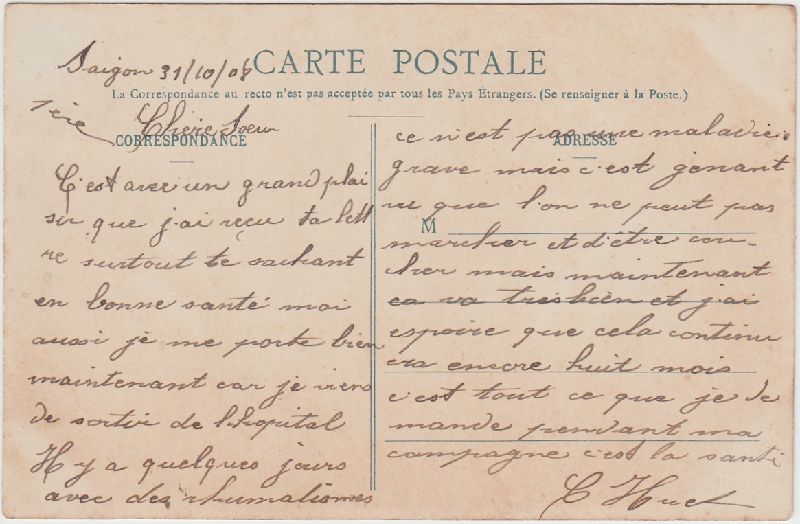 Saigon 31/10/08
CARTE POSTALE
La Correspondance au recto n'est pas acceptée par tous les Pays Étrangers. (Se renseigner à la Poste.)
1ère
Chère Soeur
CORRESPONDANCE
C'est avec un grand plai
sir que j'ai reçu ta lett
re surtout te sachant
en bonne santé moi
aussi je me porte bien
maintenant car je viens
de sortir de l'hopital
Il y a quelques jours
avec des rhumatismes
ADRESSE
M
ce n'est pas une maladie
grave mais c'est génant
vu que l'on ne peut pas
marcher et d'être cou-
cher mais maintenant
ca va tres bien et j'ai
espoire que cela continu
era encore huit mois
c'est tout ce que je de
mande pendant ma
campagne c'est la santé
C Huet